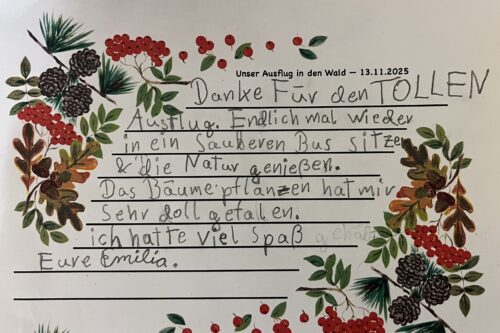 Unser Ausflug in den Wald – 13.11.2025
Danke Für den TOLLEN
Ausflug. Endlich mal wieder
in ein sauberen Bus sitzen
& die Natur genießen.
Das Bäume pflanzen hat mir
Sehr doll gefallen.
ich hatte viel spaß gehabt
Eure Emilia.